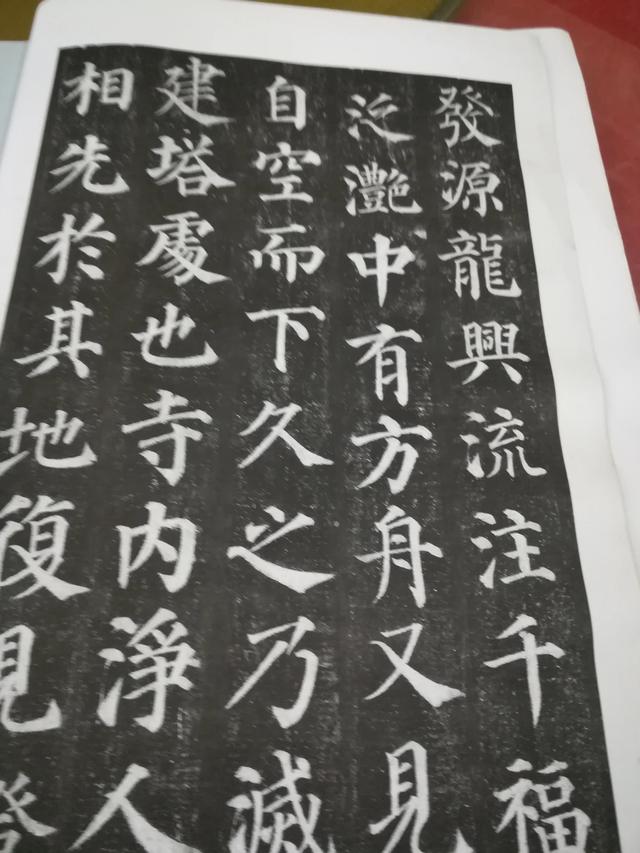 發源龍興流注千福
泛灔中有方舟又見
自空而下久之乃滅
建塔處也寺內淨人
相先於其地復見